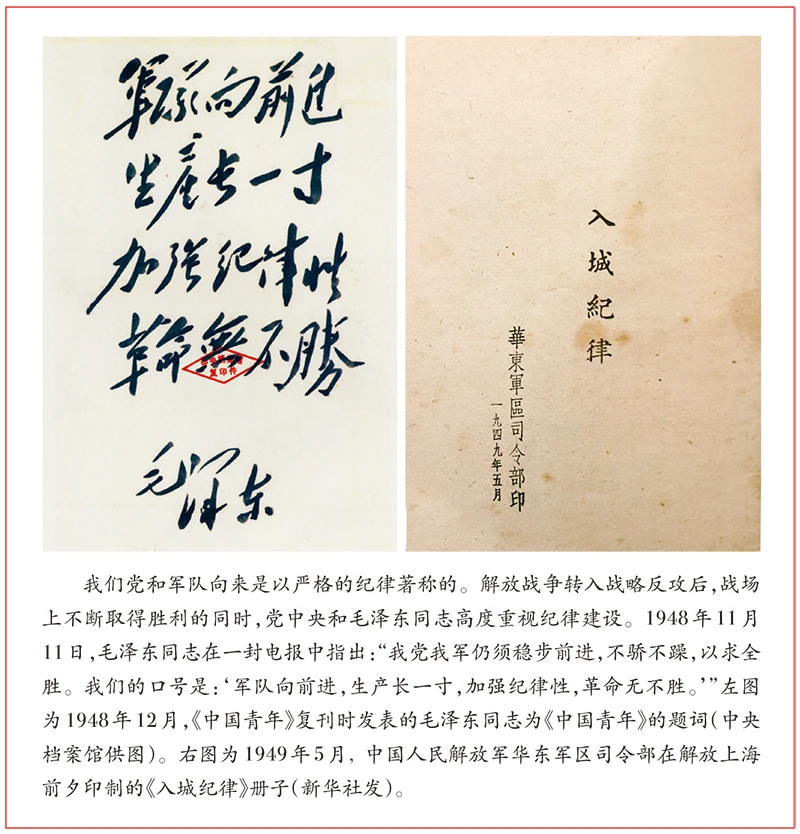 軍队向前進
生產长一寸
加强纪律性
革命無不勝
复印件
毛泽东
入城紀律
華東軍區司令部印
一九四九年五月
我们党和军队向来是以严格的纪律著称的。解放战争转入战略反攻后,战场
上不断取得胜利的同时,党中央和毛泽东同志高度重视纪律建设。1948年11月
11日,毛泽东同志在一封电报中指出:“我党我军仍须稳步前进,不骄不躁,以求全
胜。我们的口号是:‘军队向前进,生产长一寸,加强纪律性,革命无不胜。’”左图
为1948年12月,《中国青年》复刊时发表的毛泽东同志为《中国青年》的题词(中央
档案馆供图)。右图为1949年5月,中国人民解放军华东军区司令部在解放上海
前夕印制的《入城纪律》册子(新华社发)。